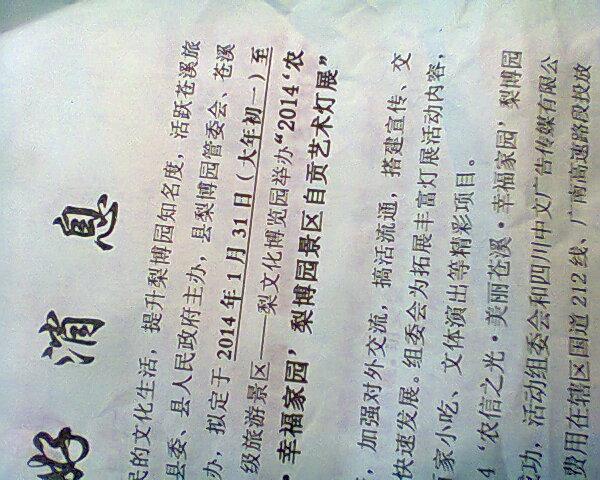 好消息
民的文化生活，提升梨博园知名度，活跃苍溪旅
县委、县人民政府主办，县梨博园管委会、苍溪
办，拟定于2014年1月31日（大年初一）至
级旅游景区——梨文化博览园举办“2014‘农
·幸福家园’梨博园景区自贡艺术灯展”
，加强对外交流，搞活流通，搭建宣传、交
快速发展。组委会为拓展丰富灯展活动内容，
家小吃、文体演出等精彩项目。
4‘农信之光·美丽苍溪·幸福家园’梨博园
成功，活动组委会和四川中文广告传媒有限公
费用在辖区国道212线、广南高速路段投放